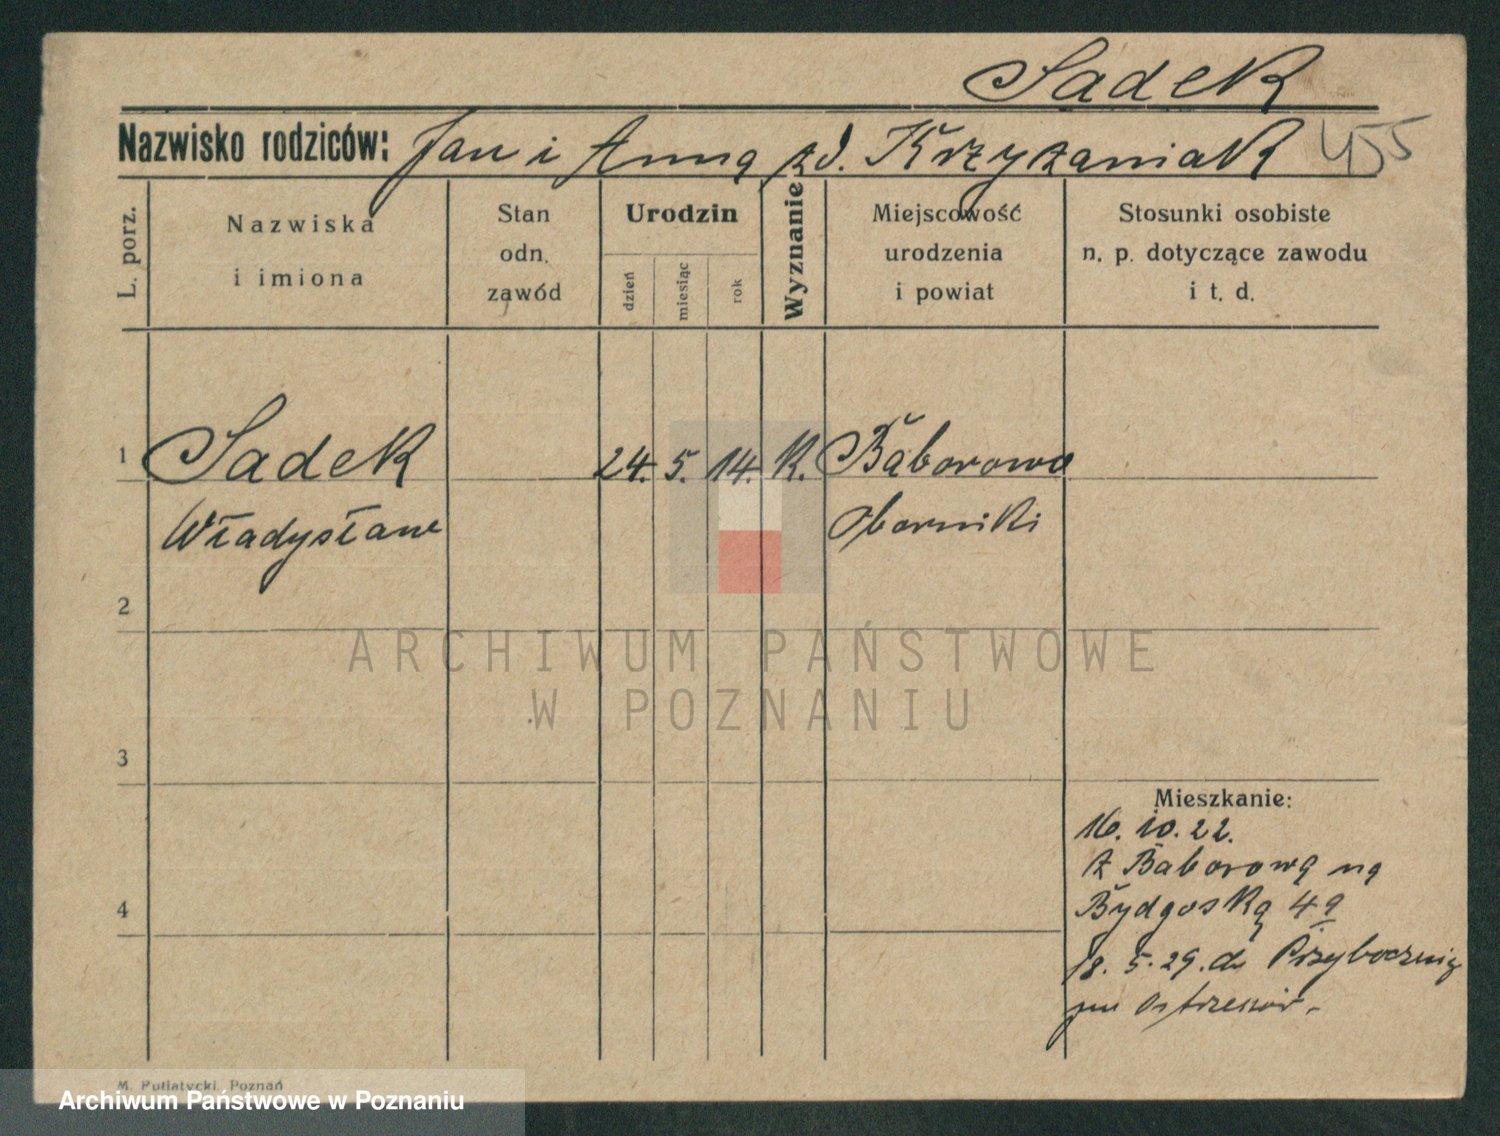 Sadek
Nazwisko rodziców: Jan i Anna zd. Krzyżaniak 455
L. porz.
Nazwiska i imiona
Stan odn. zawód
Urodzin
dzień
miesiąc
rok
Wyznanie
Miejscowość urodzenia i powiat
Stosunki osobiste n. p. dotyczące zawodu i t. d.
1 Sadek 24. 5. 14. K. Baborowo
Władysław Oborniki
2
3
4
ARCHIWUM PAŃSTWOWE
W POZNANIU
Mieszkanie:
16. 10. 22.
z Baborowa na
Bydgoską 4a
18. 5. 29. do
M. Putiatycki, Poznań
Archiwum Państwowe w Poznaniu